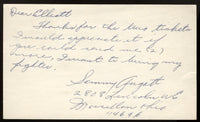 Dear Elliott
Thanks for the two tickets
I would appreciate it if
you could send me (2)
more, I want to bring my
fighter.
Sammy Angott
2808 Lincoln W E
Massillon Ohio
44646